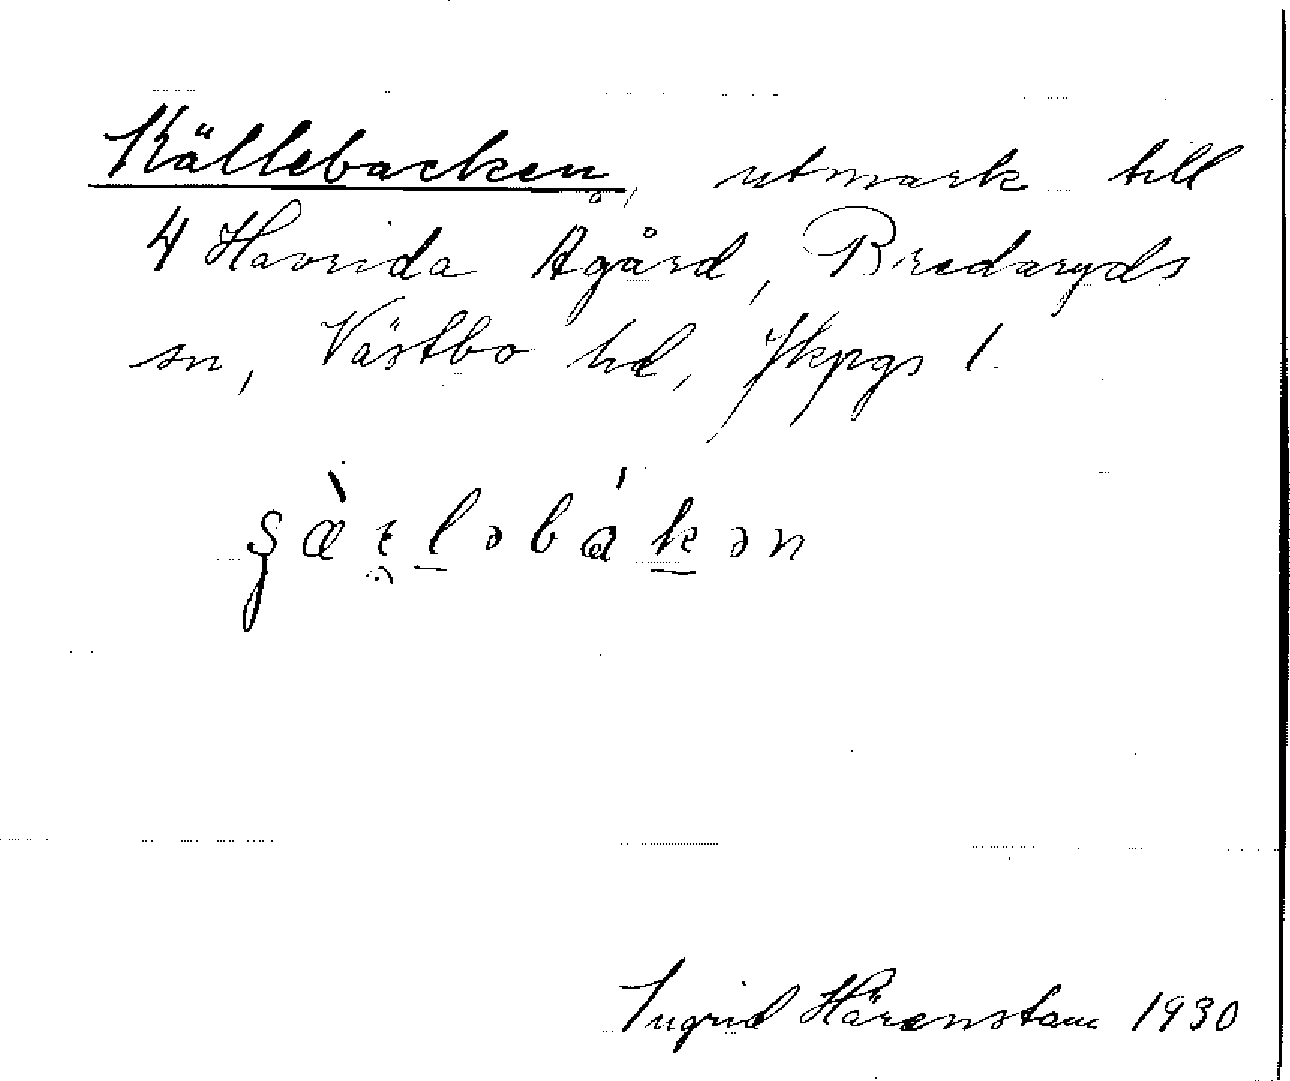 Källebacken, utmark till
4 Havrida Agård, Bredaryds
sn, Västbo hd, Jkpgs l.
Ingrid Härenstam 1930